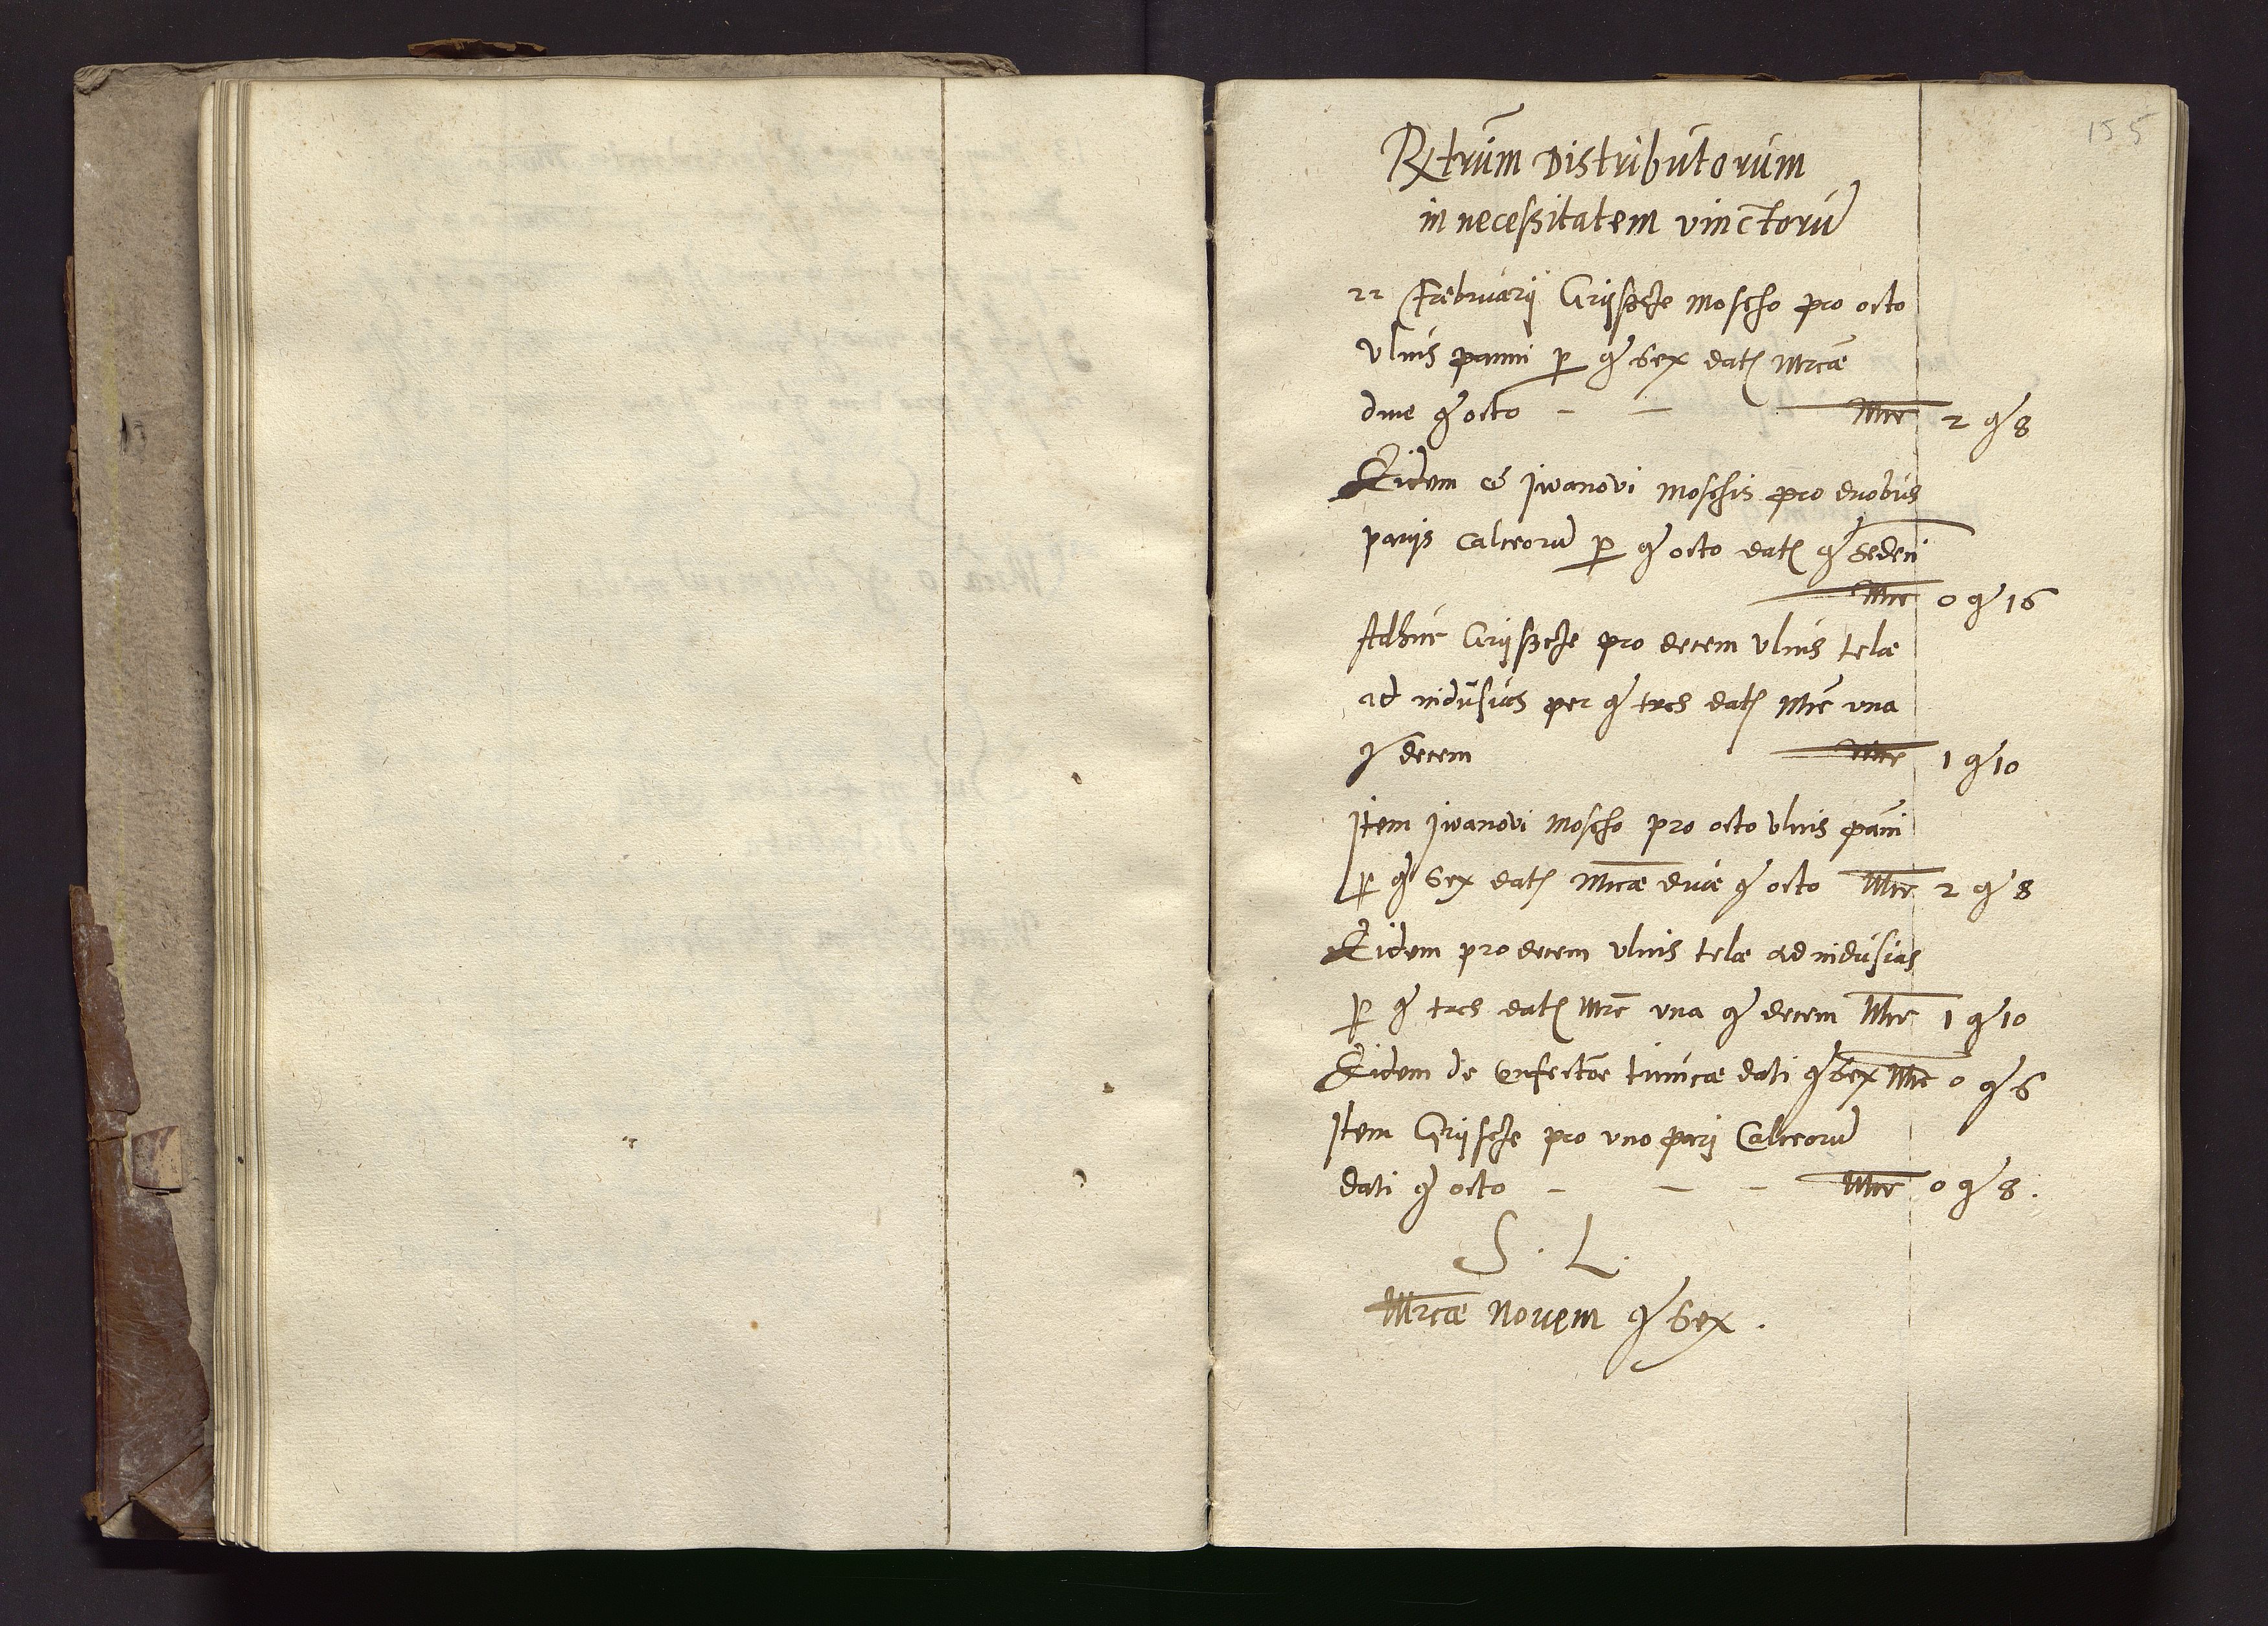 155
Rx̄trum Distributorum
in necessitatem vinctorū
22 Februarij Griszche Moscho pro octo
vlnis panni p gͦ sex datj mrcae
duae gͦ octo - - Mrc 2 gͦ 8
Eidem et Iwanovi Moschis pro duobus
parijs calceorū p gͦ octo datj gͦ sedeci
Mrc 0 gͦ 16
Adhuc Griszche pro decem vlnis telae
ad indusias per gͦ tres datj Mrc vna
gͦ decem Mrc 1 gͦ 10
Item Iwanovi Moscho pro octo vlnis pāni
p gͦ sex datj Mrcae duae gͦ octo Mrc 2 gͦ 8
Eidem pro decem vlnis telae ad indusias
p gͦ tres datj Mrc vna gͦ decem Mrc 1 gͦ 10
Eidem de confectōe tunicae dati gͦ sex Mrc 0 gͦ 6
Item Grijsche pro vno parj Calceorū
dati gͦ octo - - - Mrc 0 gͦ 8.
S. L.
Mrcae novem gͦ sex.